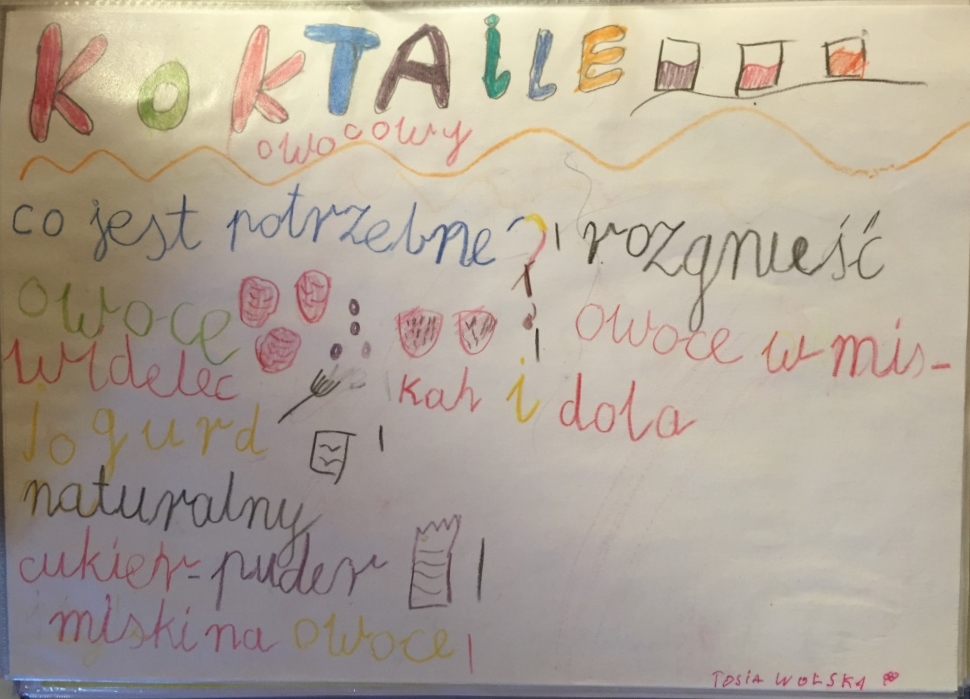 KOKTAILE
owocowy
co jest potrzebne?
owoce
widelec
Jogurd
naturalny
cukier-puder
miski na owoce
rozgnieść
owoce w mis-
kah i dola
TOSIA WOLSKA